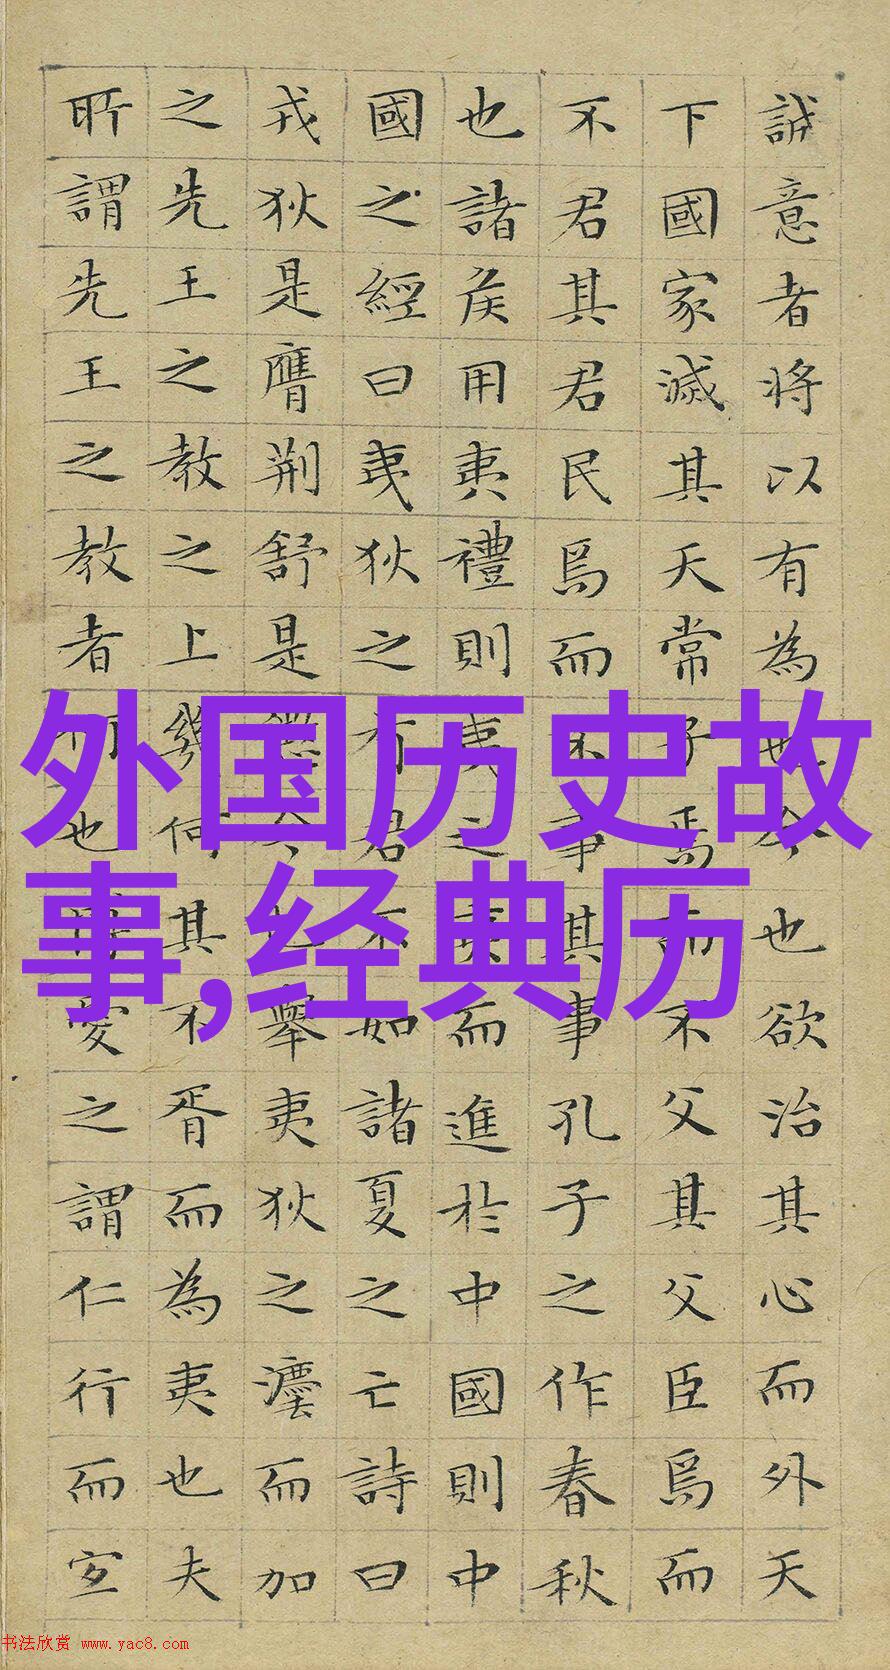 誠意者将以有為也今也欲治其心而外天
下國家滅其天常子焉而不父其父臣焉而
不君其君民焉而不事其事孔子之作春秋
也諸侯用夷禮則夷之夷而進於中國則中
國之經曰夷狄之有君不如諸夏之亡詩曰
戎狄是膺荆舒是懲今也舉夷狄之灋而加
之先王之教之上幾何其不胥而為夷也夫
所謂先王之教者何也博愛之謂仁行而宜
外国历史故
事,经典历
书法欣赏 www.yac8.com